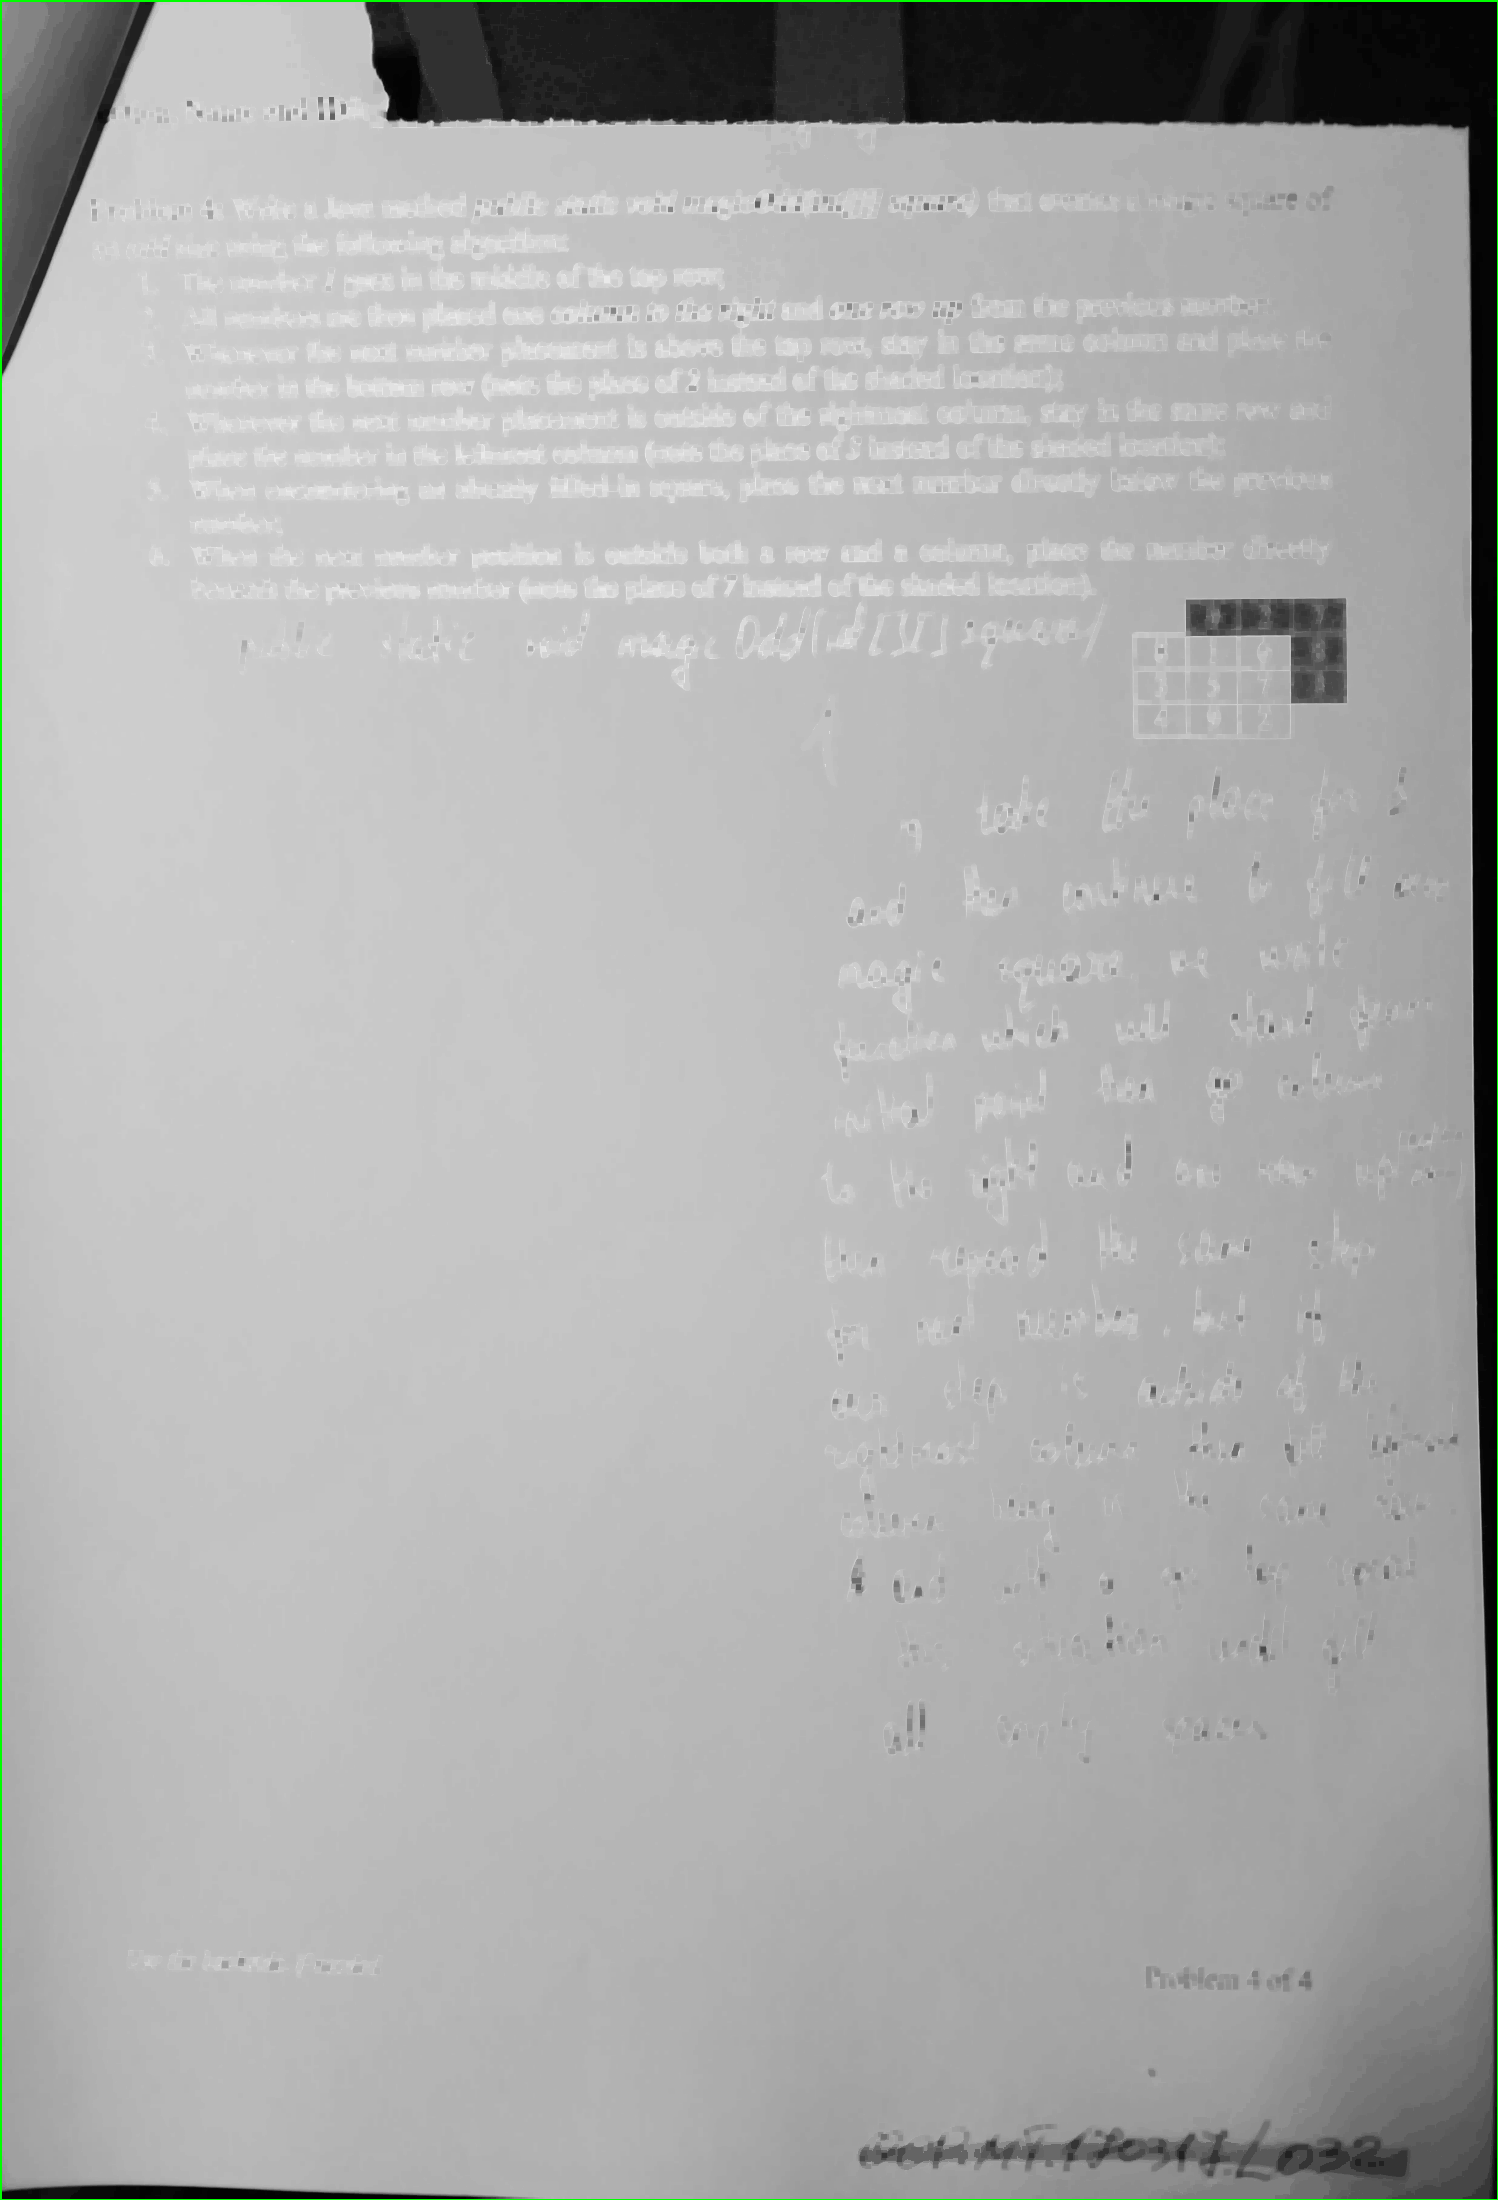 Name and ID
Problem 4. Write a Java method public static void magicOdd(int[][] square) that creates a magic square of
an odd size using the following algorithm:
1. The number 1 goes in the middle of the top row;
2. All numbers are then placed one column to the right and one row up from the previous number
3. Whenever the next number placement is above the top row, stay in the same column and place the
number in the bottom row (note the place of 2 instead of the shaded location);
4. Whenever the next number placement is outside of the rightmost column, stay in the same row and
place the number in the leftmost column (note the place of 3 instead of the shaded location);
5. When encountering an already filled-in square, place the next number directly below the previous
number;
6. When the next number position is outside both a row and a column, place the number directly
beneath the previous number (note the place of 7 instead of the shaded location).
public static void magic Odd(int[][] square)
8 1 6 8
3 5 7
4 9 2
{
take the place for
and then continue to fill our
magic square we write
function which will start from
initial point then go column
to the right and one row up
then repeat the same step
for next number, but if
our step is outside of the
rightmost column then fill leftmost
column being in the same row.
and repeat
this will fill
all empty spaces
Use the backside, if needed
Problem 4 of 4
170317/032